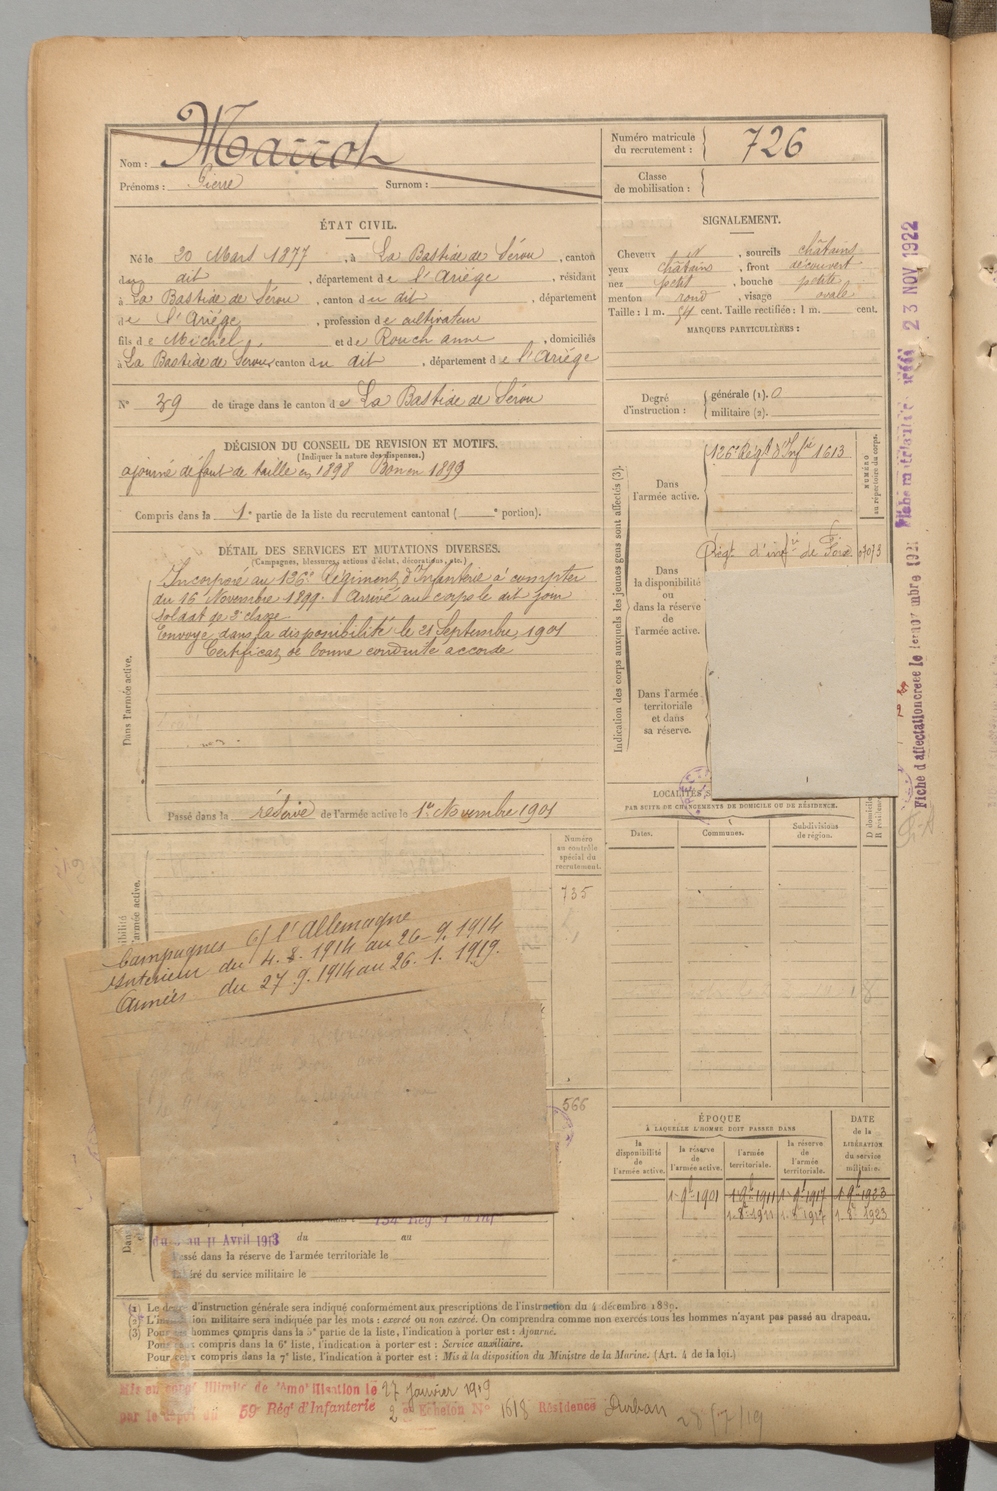 Nom : Marrot
Prénoms : Pierre Surnom :
Numéro matricule du recrutement : 726
Classe de mobilisation :
ÉTAT CIVIL.
Né le 20 Mars 1877, à La Bastide de Sérou, canton
du dit, département de l'Ariége, résidant
à La Bastide de Sérou, canton du dit, département
de l'Ariége, profession de cultivateur
fils de Michel et de Rouch anne, domiciliés
à La Bastide de Sérou, canton du dit, département de l'Ariége
N° 39 de tirage dans le canton de La Bastide de Sérou
SIGNALEMENT.
Cheveux et, sourcils châtains
yeux châtains, front découvert
nez petit, bouche petite
menton rond, visage ovale
Taille : 1 m. 54 cent. Taille rectifiée : 1 m. cent.
MARQUES PARTICULIÈRES :
Degré d'instruction : générale (1). 0
militaire (2).
DÉCISION DU CONSEIL DE REVISION ET MOTIFS.
(Indiquer la nature des dispenses.)
ajourné défaut de taille en 1898 Bon en 1899
Compris dans la 1e partie de la liste du recrutement cantonal ( e portion).
DÉTAIL DES SERVICES ET MUTATIONS DIVERSES.
(Campagnes, blessures, actions d'éclat, décorations, etc.)
Dans l'armée active.
Incorporé au 126e Régiment d'Infanterie à compter
du 16 Novembre 1899. Arrivé au corps le dit jour
soldat de 2e classe
Envoyé dans la disponibilité le 21 Septembre 1901
Certificat de bonne conduite accordé
Passé dans la réserve de l'armée active le 1er Novembre 1901
Indication des corps auxquels les jeunes gens sont affectés (3).
NUMÉRO au répertoire du corps.
Dans l'armée active.
126e Régt d'Infie 1613
Dans la disponibilité ou dans la réserve de l'armée active.
Régt d'infie de Foix 07073
Dans l'armée territoriale et dans sa réserve.
LOCALITÉS
PAR SUITE DE CHANGEMENTS DE DOMICILE OU DE RÉSIDENCE.
Dates. Communes. Subdivisions de région. D domicile R résidence
Numéro au contrôle spécial du recrutement.
735
Campagnes c/ l'Allemagne
Intérieur du 4. 8. 1914 au 26-9. 1914
Armées du 27. 9. 1914 au 26. 1. 1919.
566
ÉPOQUE
À LAQUELLE L'HOMME DOIT PASSER DANS
la disponibilité de l'armée active.
la réserve de l'armée active.
l'armée territoriale.
la réserve de l'armée territoriale.
DATE de la LIBÉRATION du service militaire.
1-9b-1901 1-9b-1911 1-9b-1917 1-9b-1923
1. 8. 1911 1. 8. 1917 1. 8. 1923
du au 11 Avril 1913 du au
Passé dans la réserve de l'armée territoriale le
Libéré du service militaire le
(1) Le degré d'instruction générale sera indiqué conformément aux prescriptions de l'instruction du 4 décembre 1889.
(2) L'instruction militaire sera indiquée par les mots : exercé ou non exercé. On comprendra comme non exercés tous les hommes n'ayant pas passé au drapeau.
(3) Pour les hommes compris dans la 5e partie de la liste, l'indication à porter est : Ajourné.
Pour ceux compris dans la 6e liste, l'indication à porter est : Service auxiliaire.
Pour ceux compris dans la 7e liste, l'indication à porter est : Mis à la disposition du Ministre de la Marine. (Art. 4 de la loi.)
Mis en congé illimité de démobilisation le 27 janvier 1919
par le dépôt du 59e Régt d'Infanterie 2e Echelon N° 1618 Résidence Durban
28/7/19
23 NOV 1922